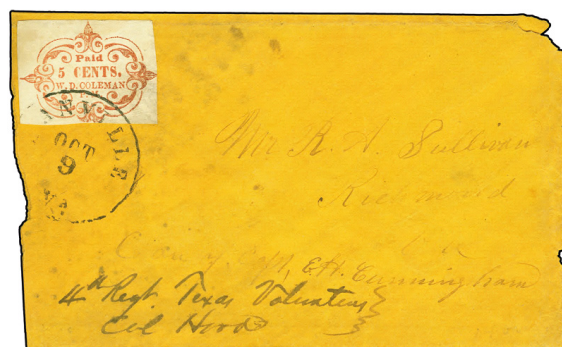 Paid
5 CENTS.
W. D. COLEMAN
ANVILLE
OCT
9
VA
Mr R. A. Sullivan
Richmond
E.H. Cunningham
4th Regt. Texas Volunteers
Col Hood